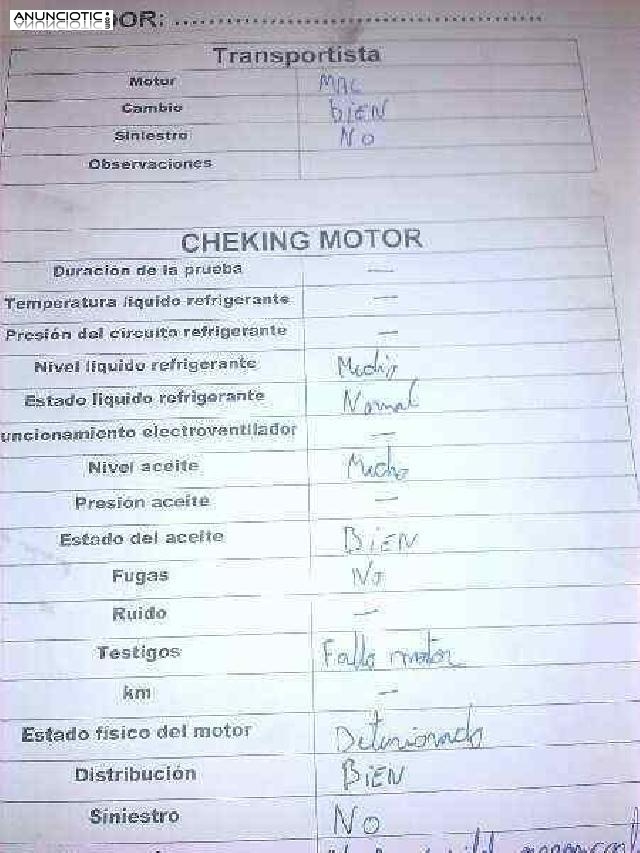 ANUNCIOTIC
DOR: ..........................................................
Transportista
Motor MAL
Cambio BIEN
Siniestro No
Observaciones
CHEKING MOTOR
Duración de la prueba —
Temperatura líquido refrigerante —
Presión del circuito refrigerante —
Nivel líquido refrigerante
Estado líquido refrigerante Normal
uncionamiento electroventilador —
Nivel aceite Mucho
Presión aceite —
Estado del aceite BIEN
Fugas No
Ruido —
Testigos Fallo motor
km —
Estado físico del motor Deteriorado
Distribución BIEN
Siniestro NO